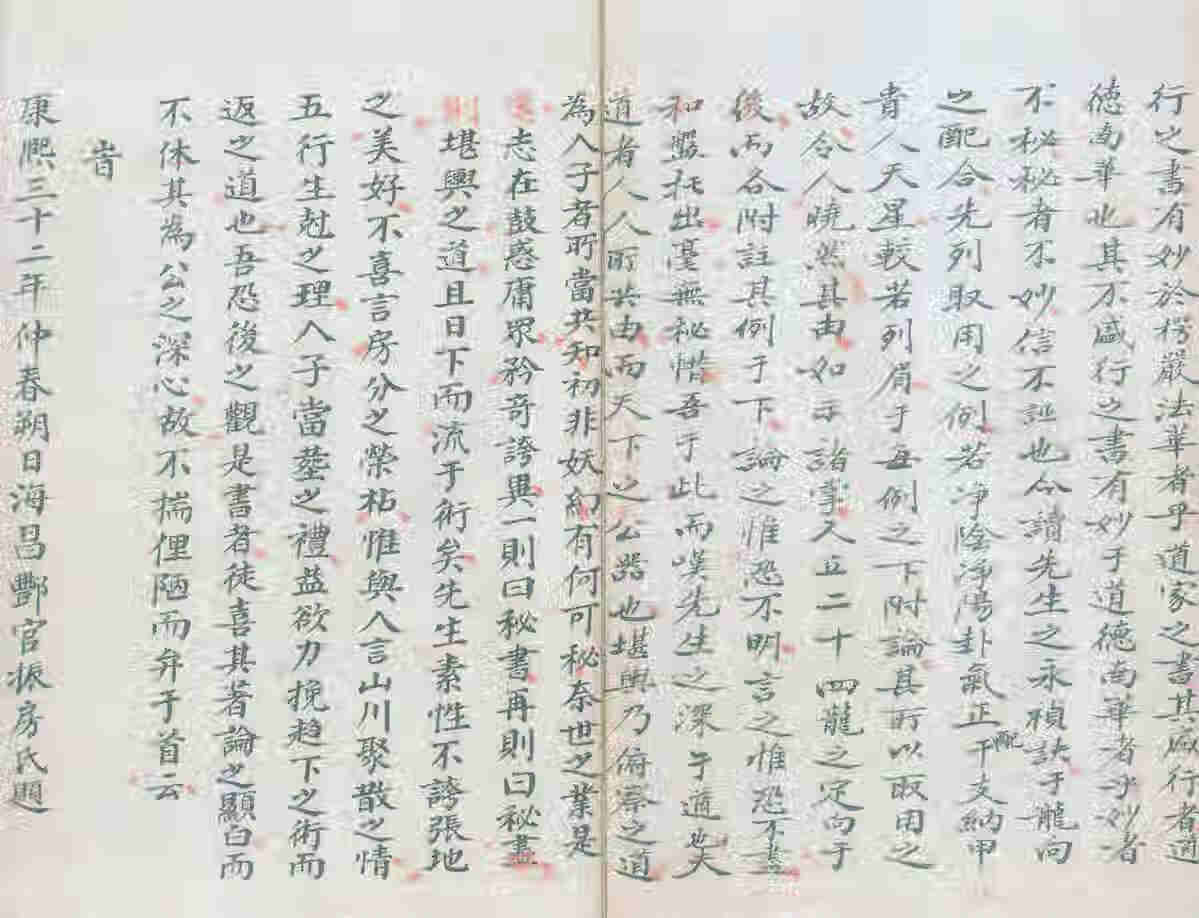 行之書有妙於楞嚴法華者乎道家之書其盛行者道
德南華也其不盛行之書有妙于道德南華者乎妙者
不秘秘者不妙信不誣也今讀先生之永禎訣于龍向
之配合先列取用之例若净陰净陽卦氣正配干支納甲
貴人天星較若列眉于每例之下附論其所以取用之
故令人曉然其由如示諸掌入五二十四龍之定向于
後而各附註其例于下論之惟恐不明言之惟恐不盡
和盤托出毫無秘惜吾于此而嘆先生之深于道也夫
道者人人所共由而天下之公器也堪輿乃俯察之道
為人子者所當共知初非妖幻有何可秘奈世之業是
志在鼓惑庸眾矜奇誇異一則曰秘書再則曰秘盡
則堪輿之道且日下而流于術矣先生素性不誇張地
之美好不喜言房分之榮枯惟與人言山川聚散之情
五行生尅之理人子當塟之禮葢欲力挽趋下之術而
返之道也吾恐後之觀是書者徒喜其著論之顯白而
不休其為公之深心故不揣俚陋而弁于首云
旹
康熈三十二年仲春朔日海昌酆官振房氏題